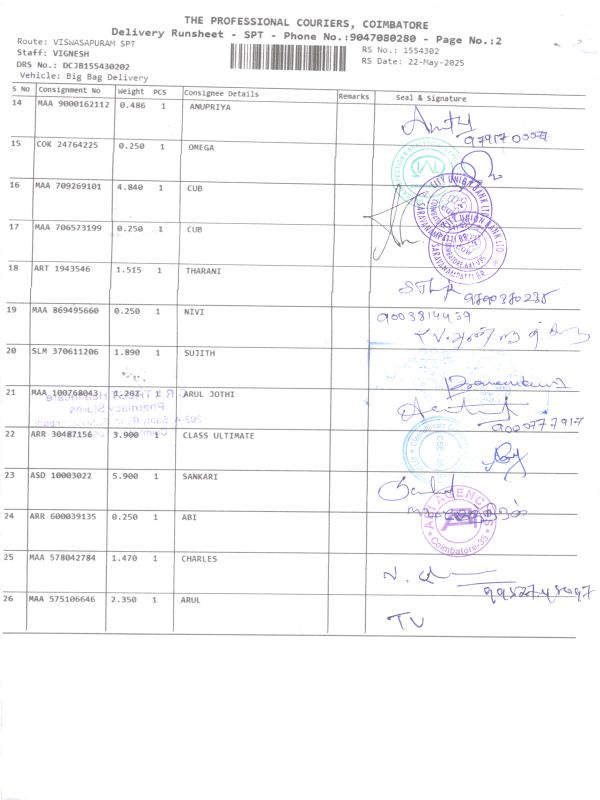 THE PROFESSIONAL COURIERS, COIMBATORE
Delivery Runsheet - SPT - Phone No.:9047080280 - Page No.:2
Route: VISWASAPURAM SPT
RS No.: 1554302
Staff: VIGNESH
RS Date: 22-May-2025
DRS No.: DCJB155430202
Vehicle: Big Bag Delivery
S No Consignment No Weight PCS Consignee Details Remarks Seal & Signature
14 MAA 9000162112 0.486 1 ANUPRIYA
15 COK 24764225 0.250 1 OMEGA
16 MAA 709269101 4.840 1 CUB
CITY UNION BANK LTD.
SARAVANAMPATTI BR
17 MAA 706573199 0.250 1 CUB
CITY UNION BANK LTD.
SARAVANAMPATTI BR
18 ART 1943546 1.515 1 THARANI
9790380235
19 MAA 869495660 0.250 1 NIVI
9003814439
20 SLM 370611206 1.890 1 SUJITH
21 MAA 100768043 1.202 1 ARUL JOTHI
9000777917
22 ARR 30487156 3.900 1 CLASS ULTIMATE
23 ASD 10003022 5.900 1 SANKARI
24 ARR 600039135 0.250 1 ABI
ABI AGENCIES
Coimbatore-35
25 MAA 578042784 1.470 1 CHARLES
26 MAA 575106646 2.350 1 ARUL
TV